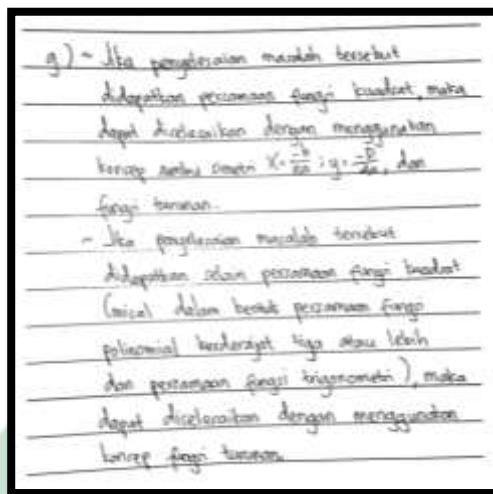 g) - Jika penyelesaian masalah tersebut
didapatkan persamaan fungsi kuadrat, maka
dapat diselesaikan dengan menggunakan
konsep sumbu simetri x = -b/2a ; y = -D/4a, dan
fungsi turunan.
- Jika penyelesaian masalah tersebut
didapatkan selain persamaan fungsi kuadrat
(misal dalam bentuk persamaan fungsi
polinomial berderajat tiga atau lebih
dan persamaan fungsi trigonometri), maka
dapat diselesaikan dengan menggunakan
konsep fungsi turunan.